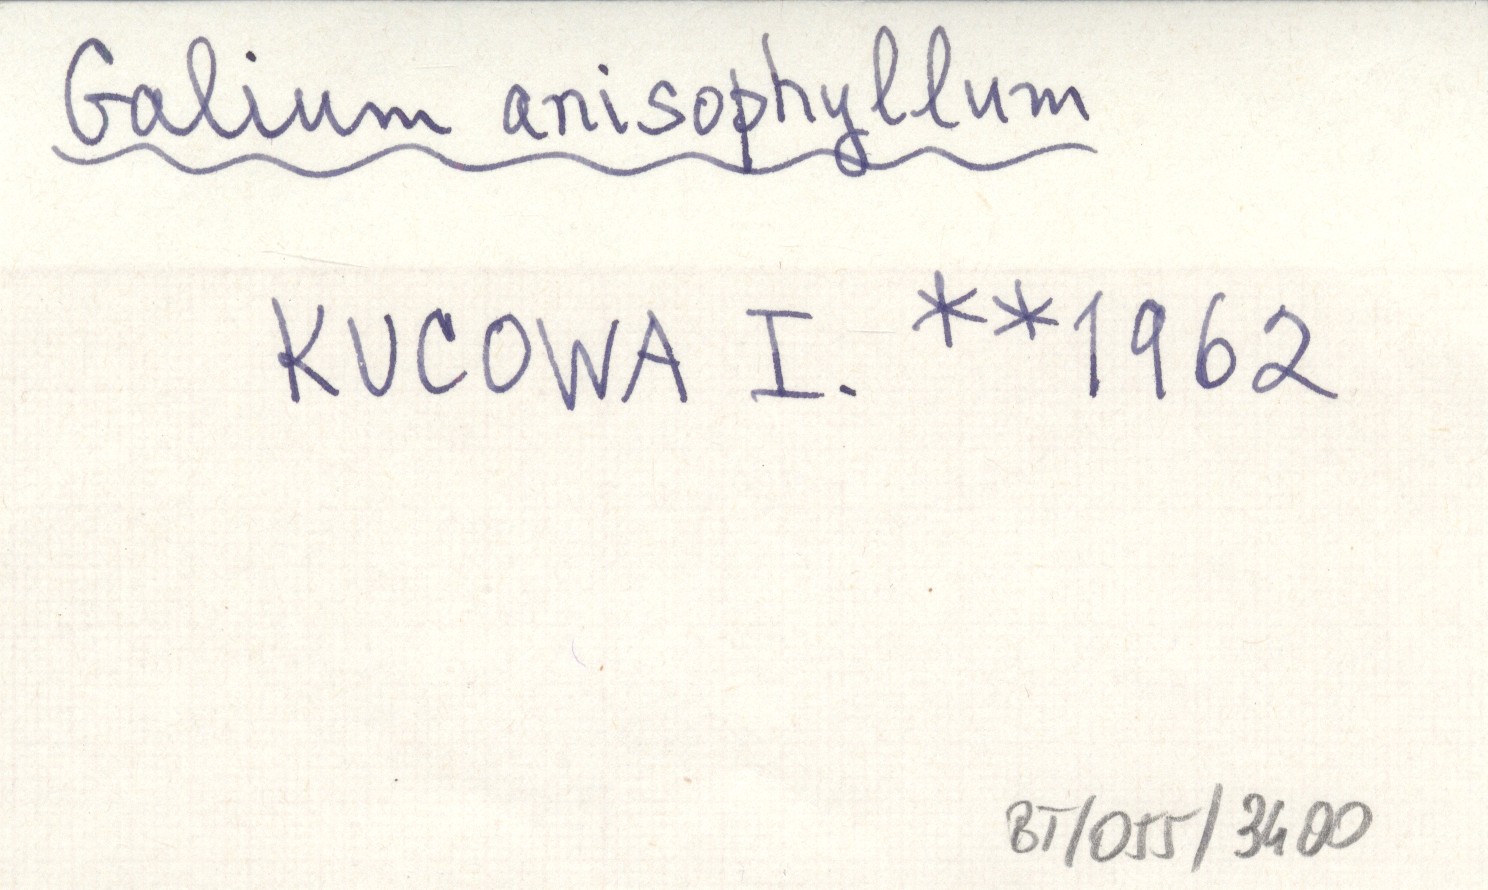 Galium anisophyllum
KUCOWA I. **1962
BT/055/3400